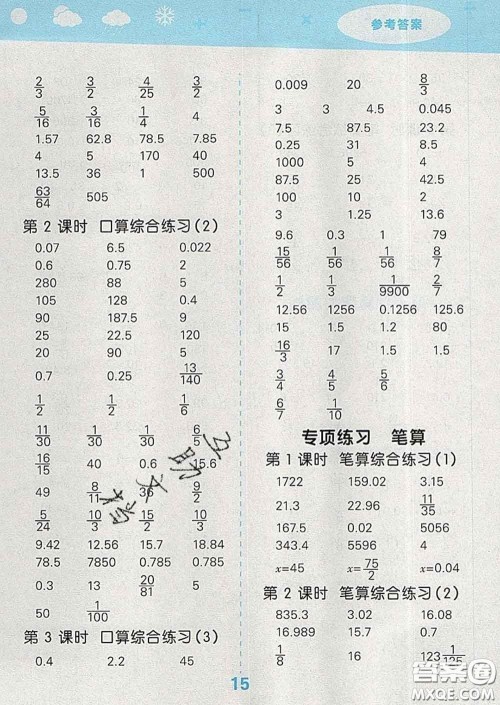 参考答案
2/3 3/2 4/25 3/2
5/16 3/16 1/4 4
1.57 62.8 78.5 7.85
4 5 170 40
13.5 36 1 500
63/64 505
第 2 课时 口算综合练习(2)
0.07 6.5 0.022
0.6 0.75 2
280 88 5
105 128 0.4
90 187.5 9
25 22.5 120
20 90 5
0.7 0.25 13/140
1/2 1/2 1/6
11/30 11/30 1/30 6/5
16/15 40 0.6 15.6
49 8/11 36 9/2
5/24 10/3 15/2 10/3
9.42 12.56 15.7 18.84
78.5 7850 0.785 0.785
0.3 13 20/81 5
50 1/100
第 3 课时 口算综合练习(3)
0.4 2.2 45
0.009 20 8/3
3 3 4.5 0.045
7.5 87.5 23.2
0.25 31 8.5
1000 5 10
25 4 42
3 1.25 13.6
9.6 0.3 1 79
15/56 1/56 1/56 8/7
1/2 1/3 1/9900 2/7
12.56 1256 0.1256 125.6
1.5 1.5 1.2 80
16/3 17 1.5 1.2
3/4 4/5 5/6
6/7 1/10
专项练习 笔算
第 1 课时 笔算综合练习(1)
1722 159.02 3.15
21.3 22.96 11/35
167.5 0.02 5056
343.4 5596 4
x=45 x=75/2 x=0.04
第 2 课时 笔算综合练习(2)
835.3 3.02 16.08
16.989 15.7 0.79
1/8 16 123 1/125
15
互助文档
答案圈
MXQE.COM